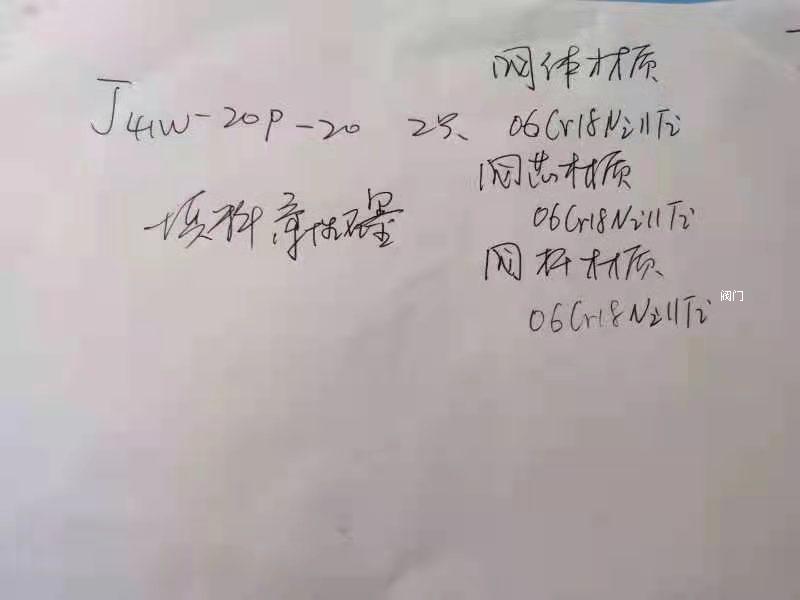 J41W-20P-20 2只
填料 柔性石墨
阀体材质
06Cr18Ni11Ti
阀芯材质
06Cr18Ni11Ti
阀杆材质
06Cr18Ni11Ti
阀门